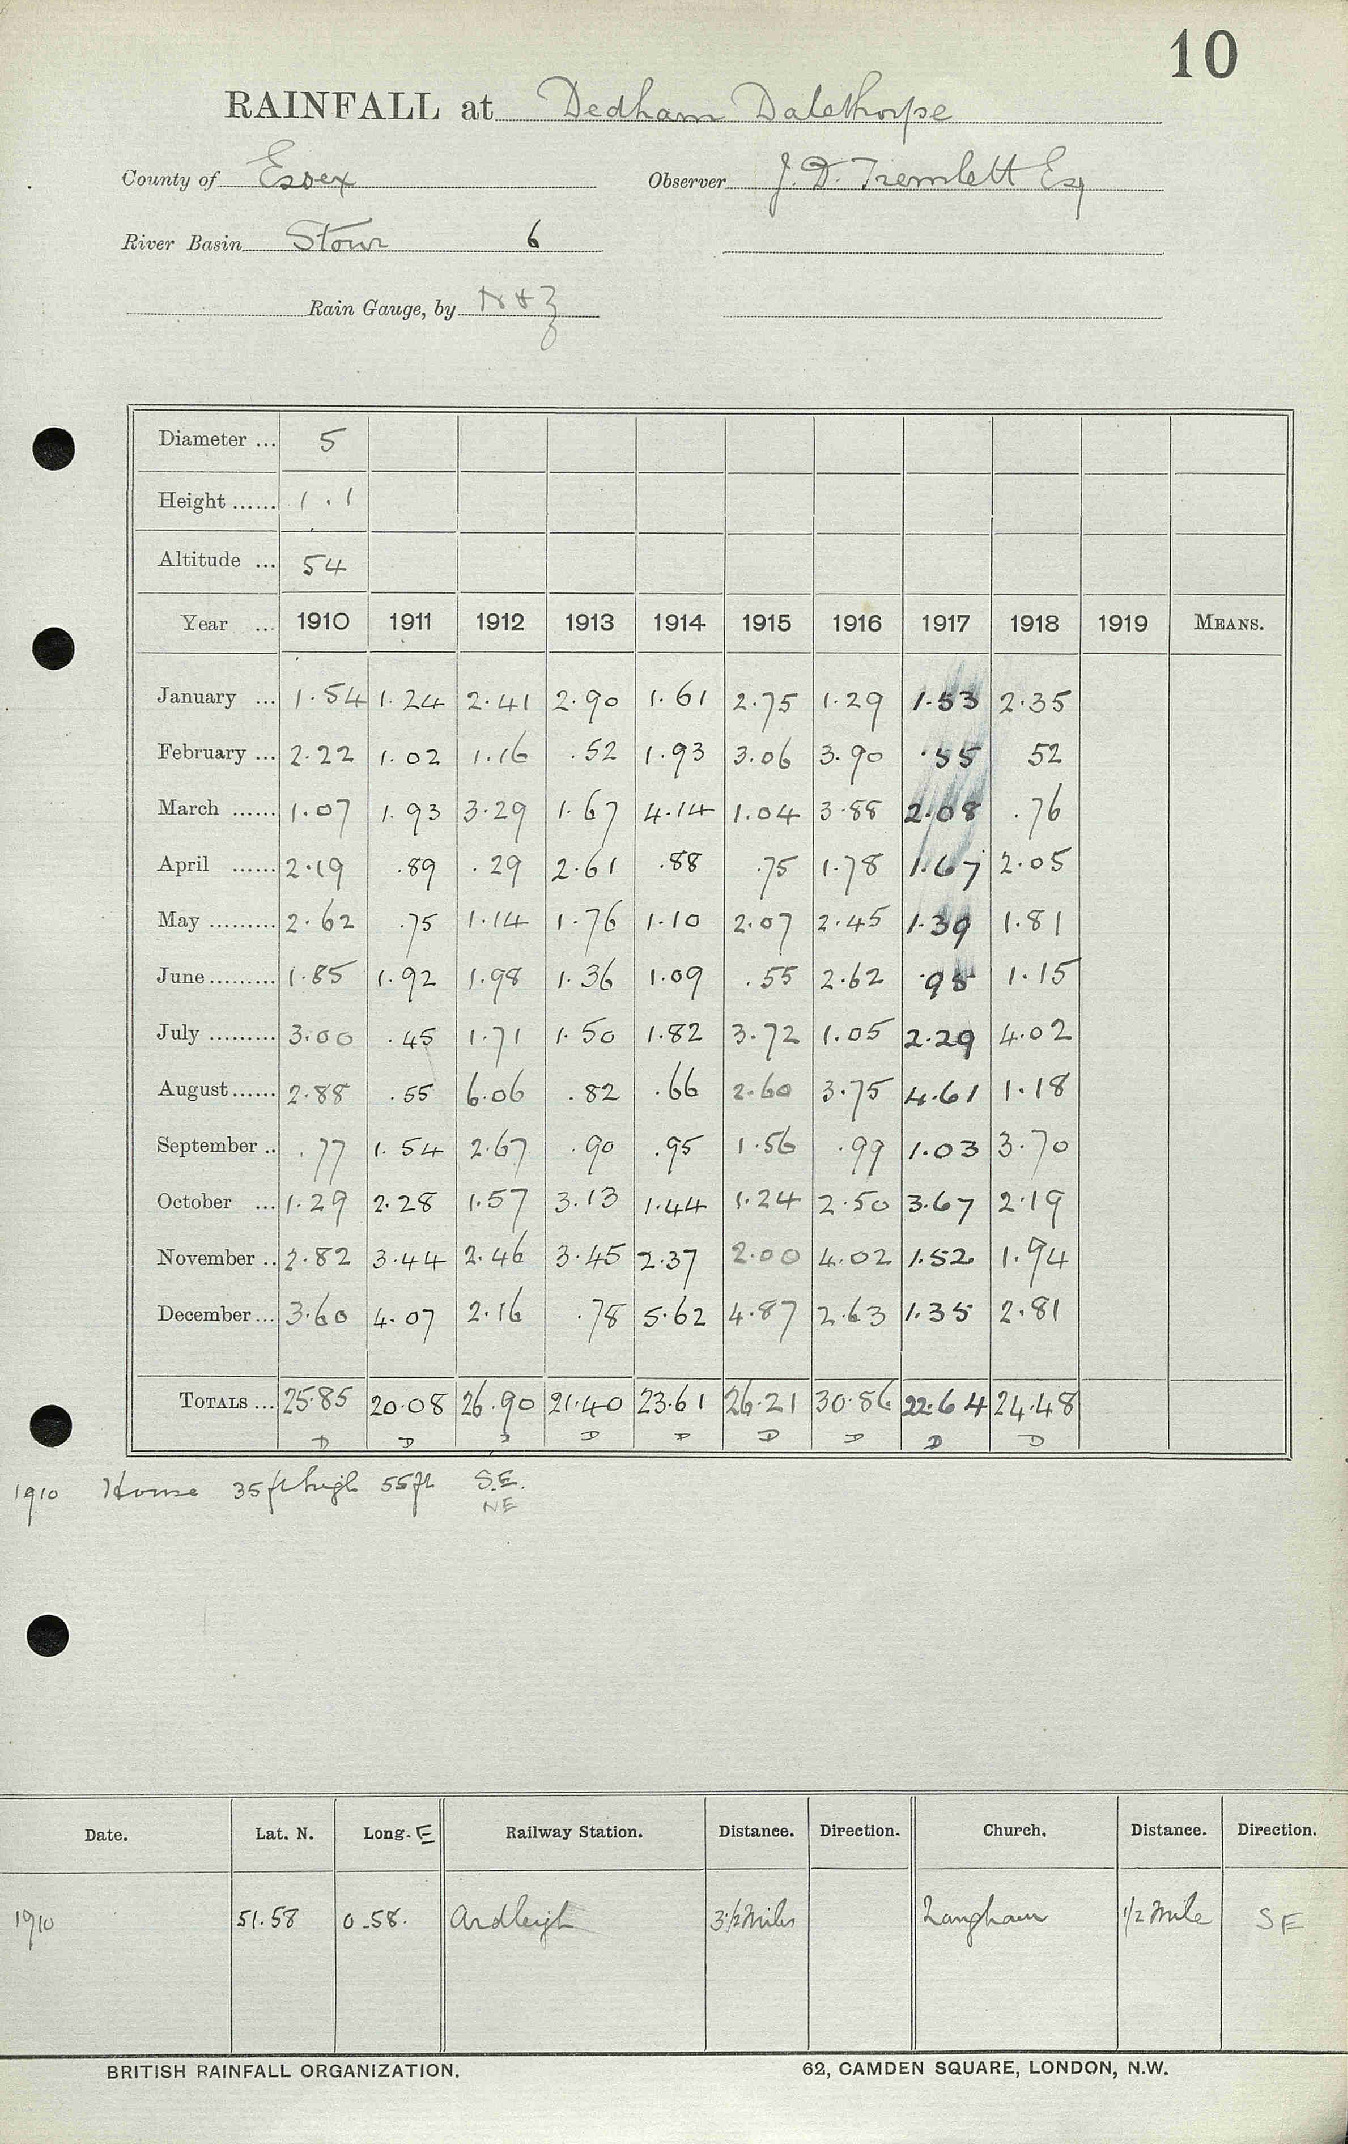 10
RAINFALL at Dedham Dalethorpe
County of Essex Observer J. D. Tremlett Esq
River Basin Stour 6
Rain Gauge, by N & Z
Diameter ... 5
Height ...... 1.1
Altitude ... 54
Year ... 1910 1911 1912 1913 1914 1915 1916 1917 1918 1919 MEANS.
January ... 1.54 1.24 2.41 2.90 1.61 2.75 1.29 1.53 2.35
February ... 2.22 1.02 1.16 .52 1.93 3.06 3.90 .55 52
March ...... 1.07 1.93 3.29 1.67 4.14 1.04 3.88 2.08 .76
April ...... 2.19 .89 .29 2.61 .88 .75 1.78 1.67 2.05
May ......... 2.62 .75 1.14 1.76 1.10 2.07 2.45 1.39 1.81
June ......... 1.85 1.92 1.98 1.36 1.09 .55 2.62 .95 1.15
July ......... 3.00 .45 1.71 1.50 1.82 3.72 1.05 2.29 4.02
August ...... 2.88 .55 6.06 .82 .66 2.60 3.75 4.61 1.18
September .. .77 1.54 2.67 .90 .95 1.56 .99 1.03 3.70
October ... 1.29 2.28 1.57 3.13 1.44 1.24 2.50 3.67 2.19
November .. 2.82 3.44 2.46 3.45 2.37 2.00 4.02 1.52 1.94
December ... 3.60 4.07 2.16 .78 5.62 4.87 2.63 1.35 2.81
TOTALS ... 25.85 20.08 26.90 21.40 23.61 26.21 30.86 22.64 24.48
D D D D D D D D D
1910 House 35ft high 55ft S.E.
NE
Date. Lat. N. Long. E Railway Station. Distance. Direction. Church. Distance. Direction.
1910 51.58 0.58. Ardleigh 3½ Miles Langham ½ Mile SE
BRITISH RAINFALL ORGANIZATION. 62, CAMDEN SQUARE, LONDON, N.W.